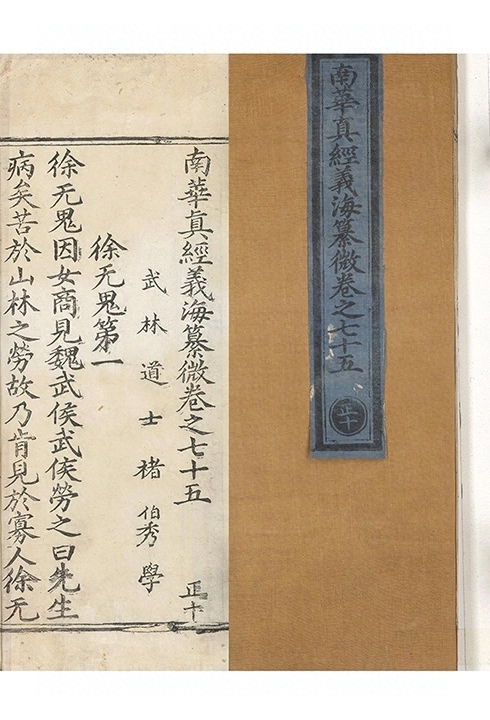 南華真經義海纂微卷之七十五
正十
南華真經義海纂微卷之七十五 正十
武林道士褚伯秀學
徐无鬼第一
徐无鬼因女商見魏武侯武侯勞之曰先生
病矣苦於山林之勞故乃肯見於寡人徐无